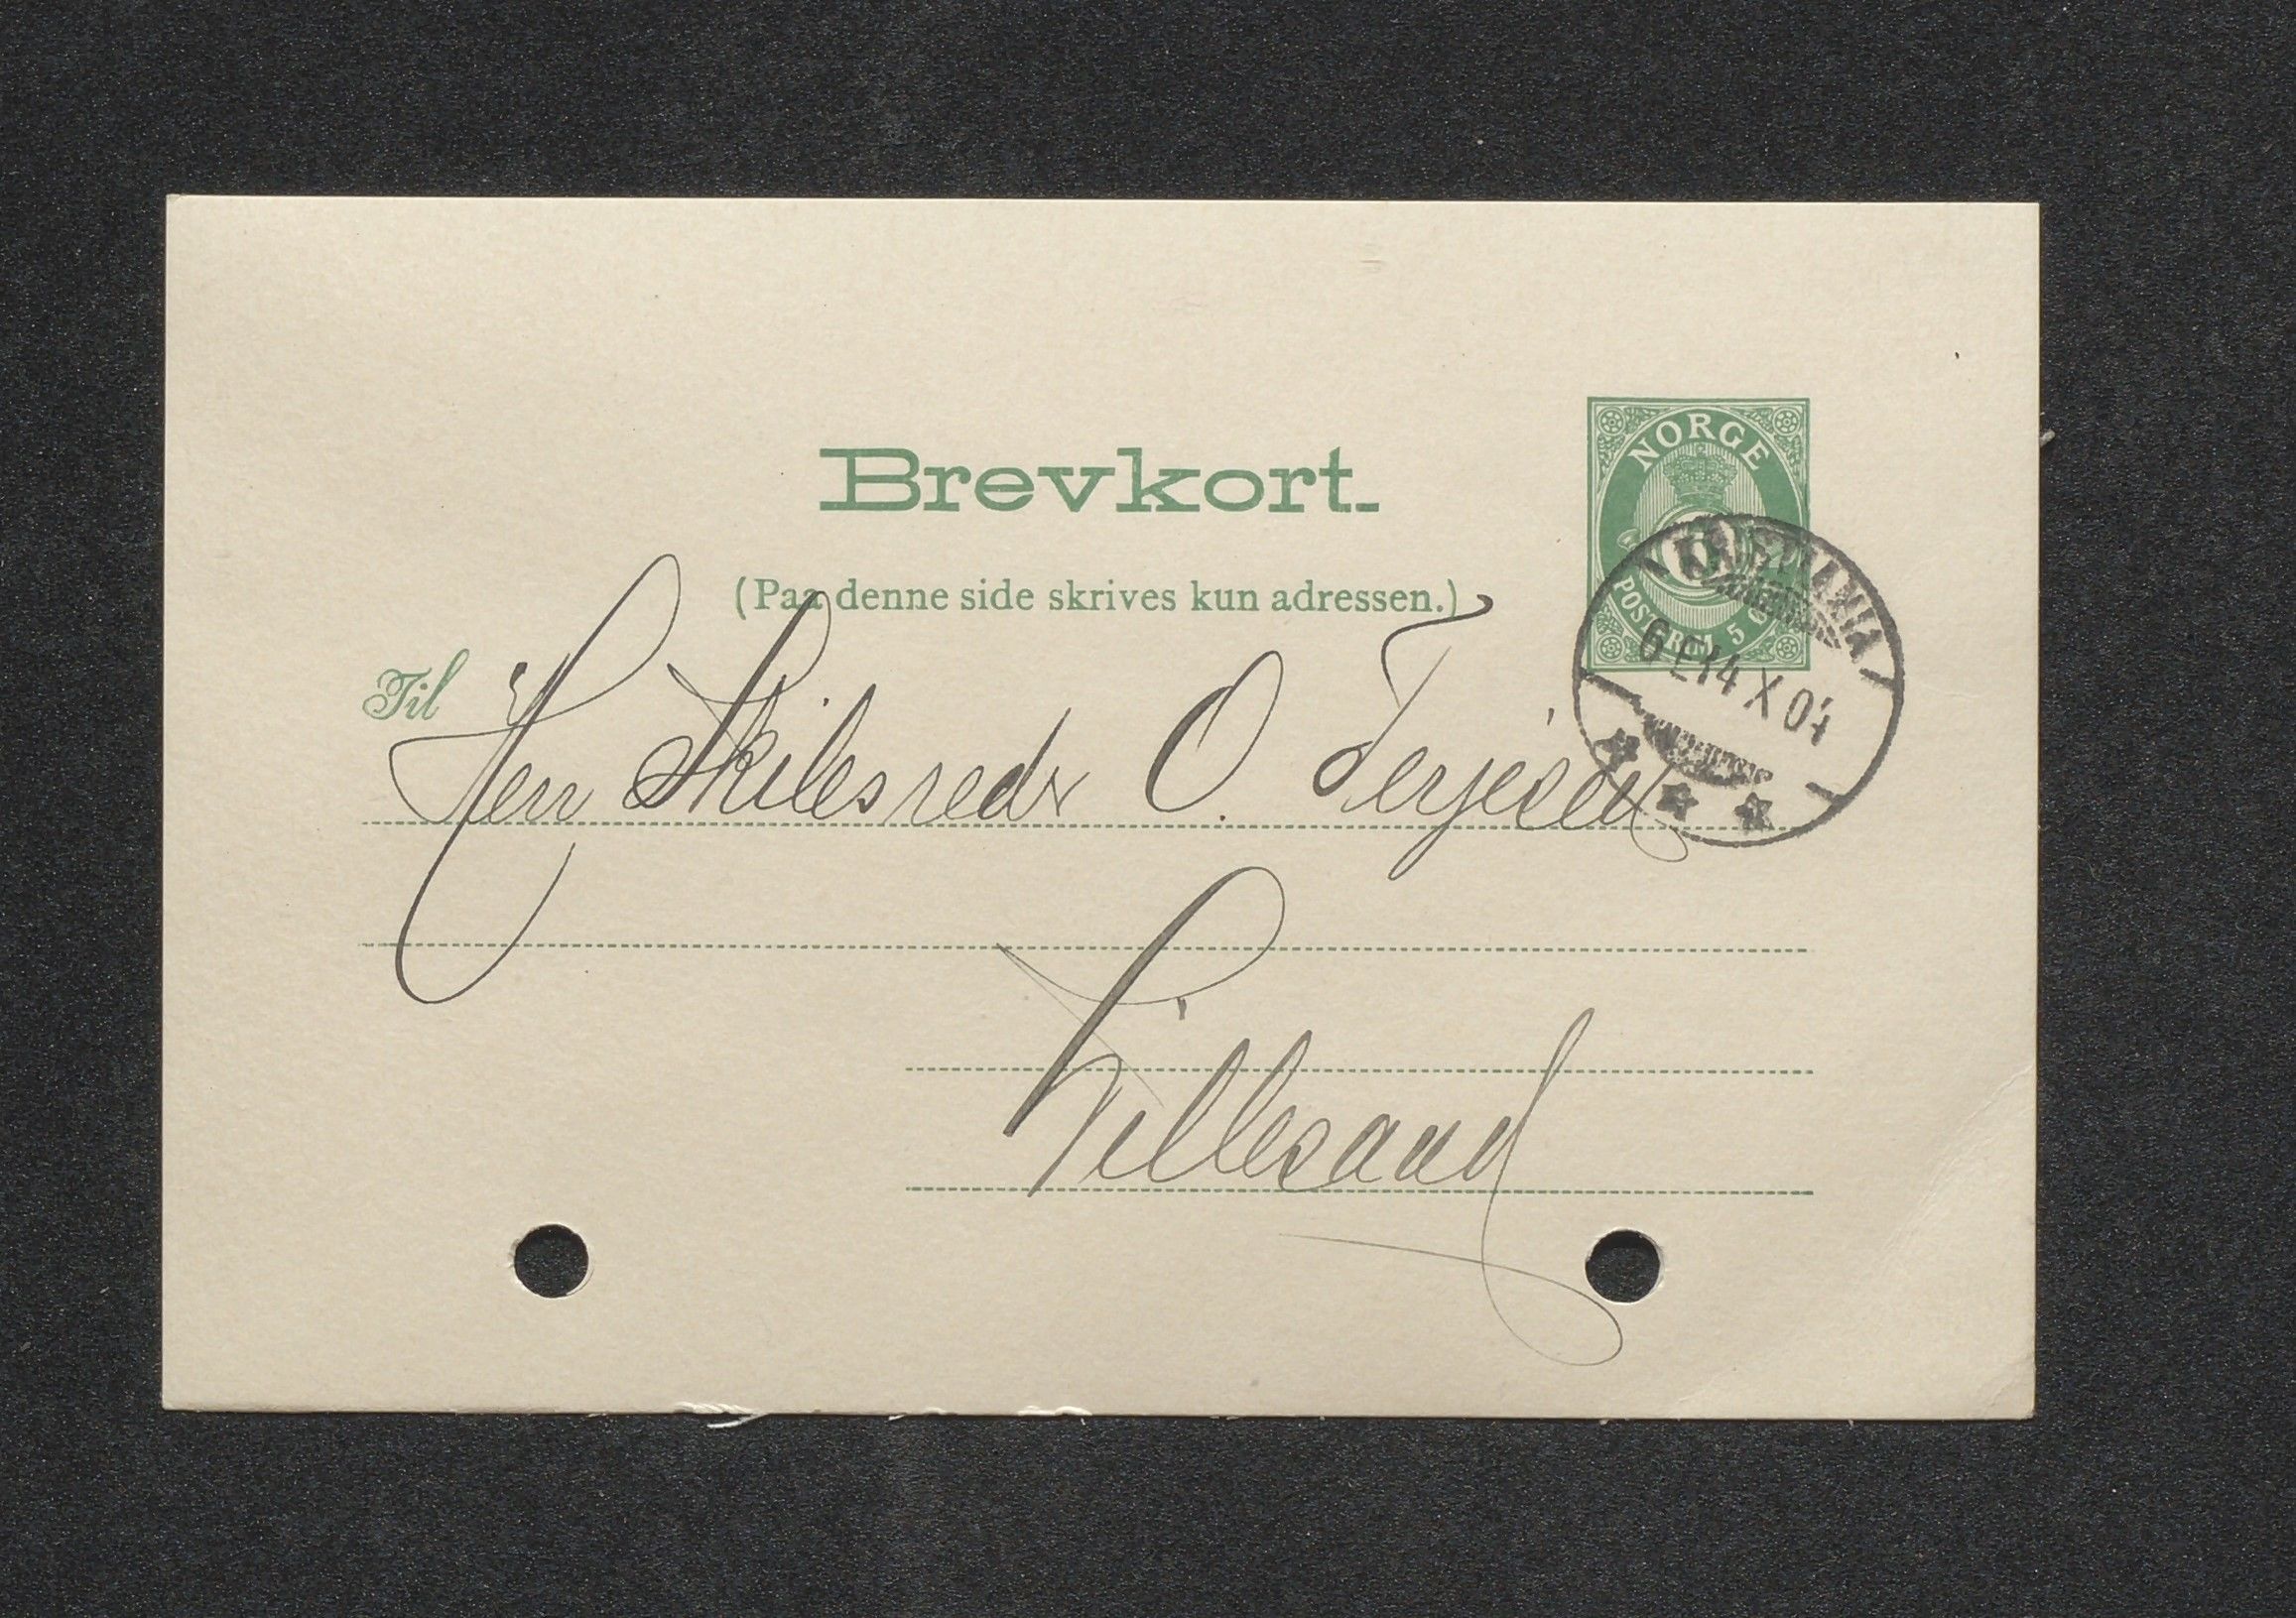 Brevkort.
NORGE
POSTFRIM 5 Ø
KRISTIANIA
6 E 14 X 04
(Paa denne side skrives kun adressen.)
Til
Herr Skibsreder O. Terjesen
Lillesand